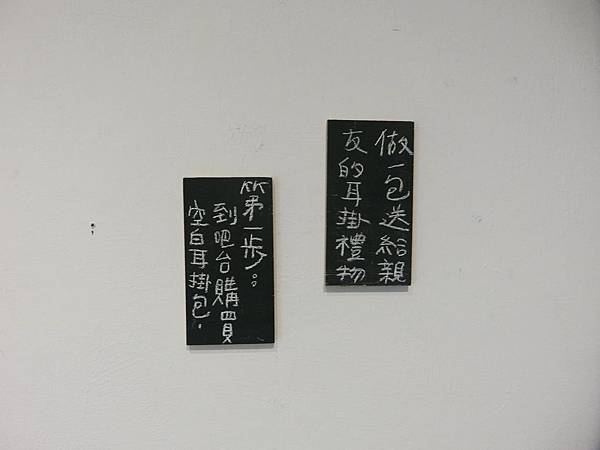 做一包送給親
友的耳掛禮物
第一步：
到吧台購買
空白耳掛包.